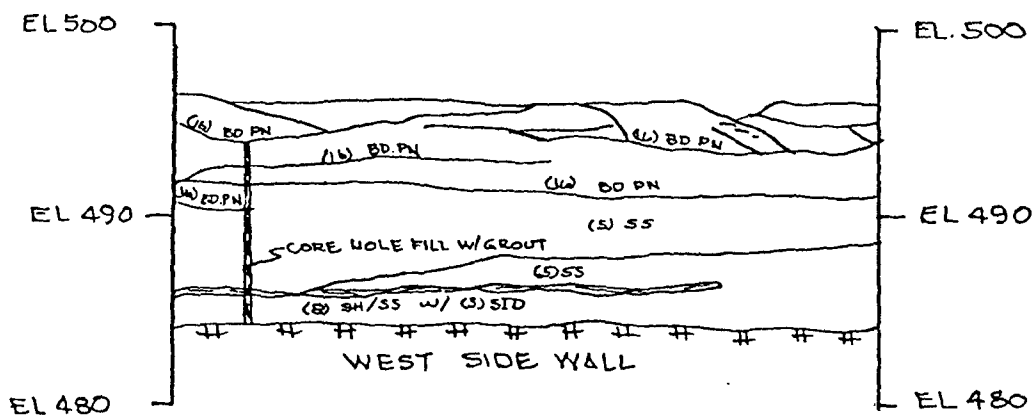 EL 500
EL. 500
(16) BD PN
(16) BD. PN
BD PN
BD PN
BD.PN
EL 490
EL 490
(5) SS
CORE HOLE FILL W/GROUT
(5) SS
(8) SH/SS W/ (5) SID
WEST SIDE WALL
EL 480
EL 480